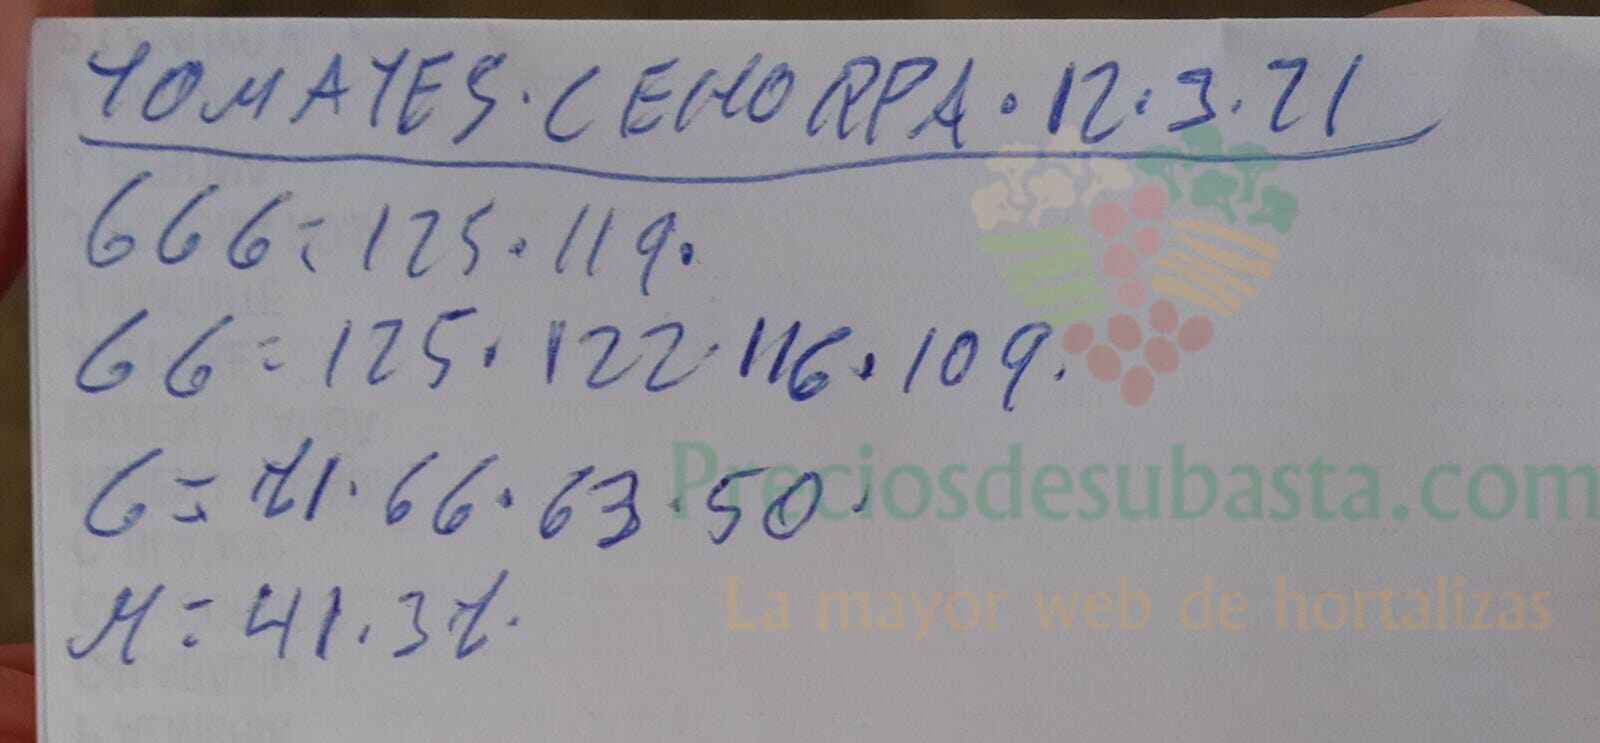 TOMATES·CEHORPA·12·3·21
GGG=125·119.
GG=125·122·116·109.
G=71·66·63·50.
M=41·37.
Preciosdesubasta.com
La mayor web de hortalizas